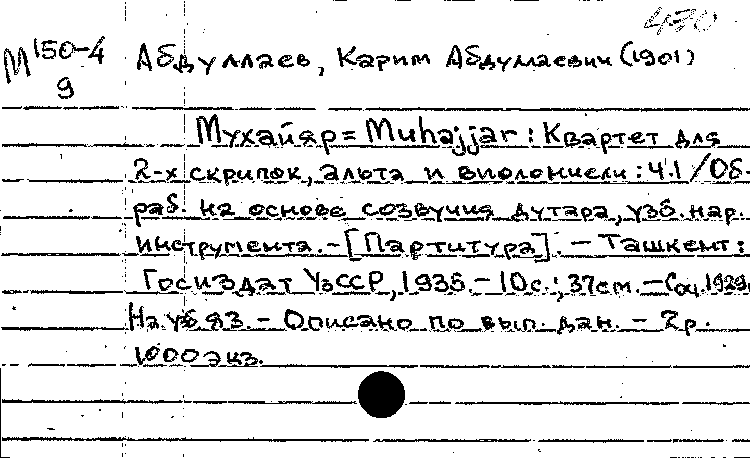 470
М150-4 Абдуллаев, Карим Абдуллаевич (1901)
9
Мухайяр = Muhajjar : Квартет для
2-х скрипок, альта и виолончели : ч.1 / Об-
раб. на основе созвучия дутара, узб. нар.
инструмента. - [Партитура]. - Ташкент :
Госиздат УзССР, 1936. - 10с.; 37см. - Соч. 1929.
На узб яз. - Описано по вып. дан. - 2р.
1000 экз.